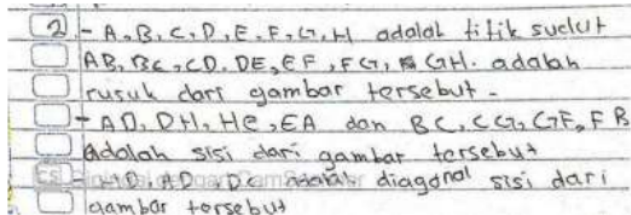 2. - A, B, C, D, E, F, G, H adalah titik sudut
AB, BC, CD, DE, EF, FG, GH. adalah
rusuk dari gambar tersebut.
- AD, DH, He, EA dan BC, CG, GF, FB
adalah sisi dari gambar tersebut
HD, AD, DC adalah diagonal sisi dari
gambar tersebut